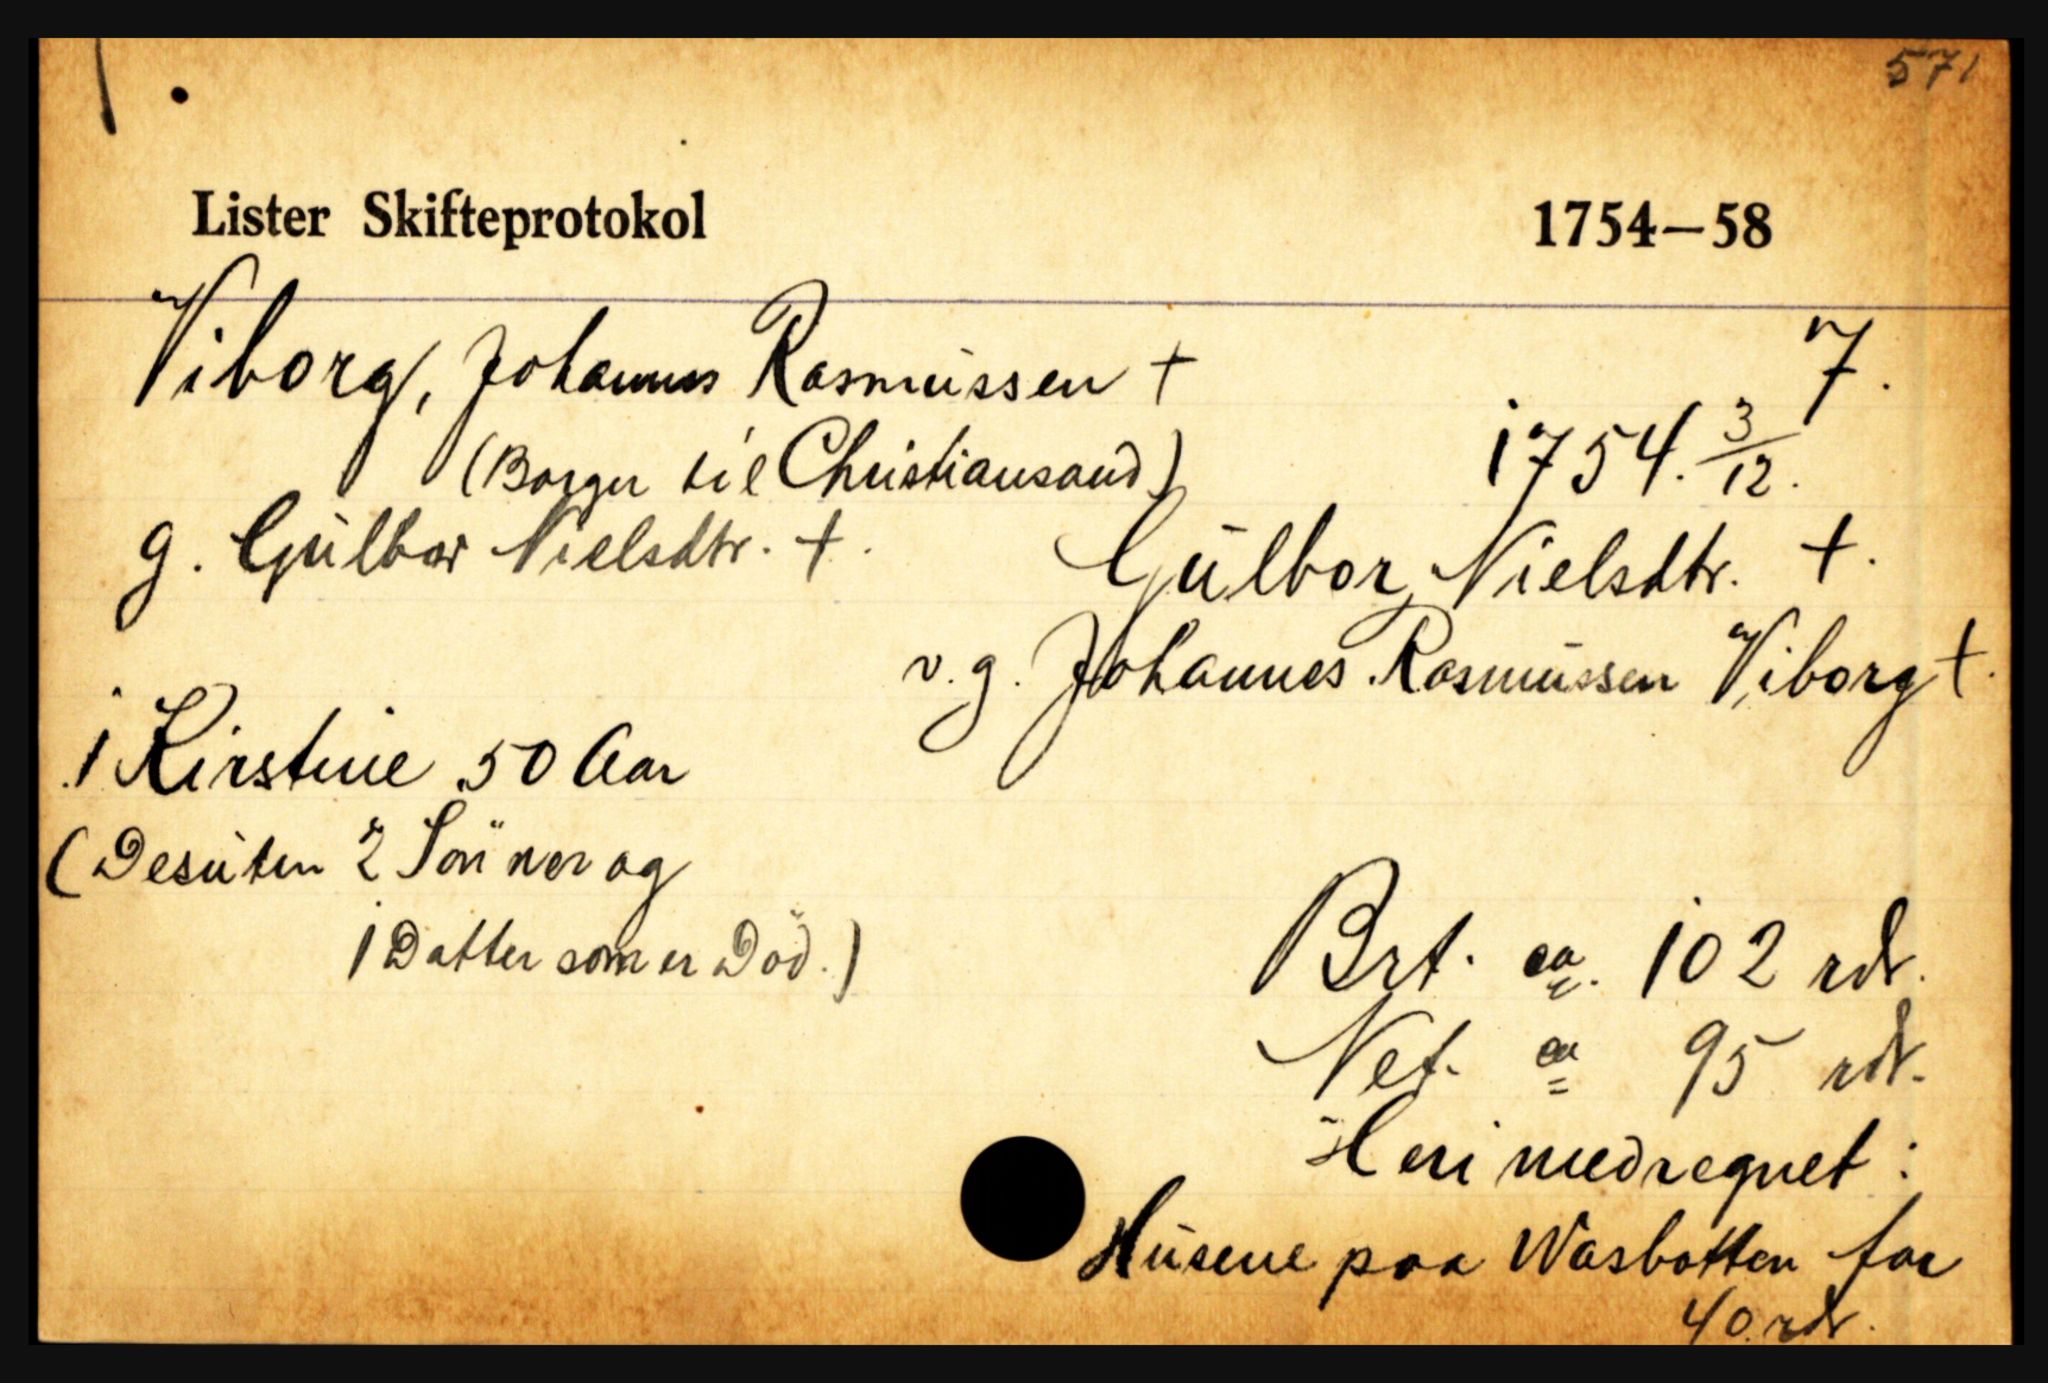 571
Lister Skifteprotokol 1754—58
Viborg, Johannes Rasmüssen + 7.
(Borger til Christiansand) 1754. 3/12.
g. Gülbor Nielsdtr. +.
Gülbor Nielsdtr. +.
v. g. Johannes Rasmüssen Viborg +.
1 Kirstine 50 Aar
(Desüten 2 Sönner og
1 Datter som er Död.)
Brt. ca. 102 rdr.
Net. ca 95 rdr.
Heri medregnet:
Hüsene paa Wasbotten for
40 rdr.